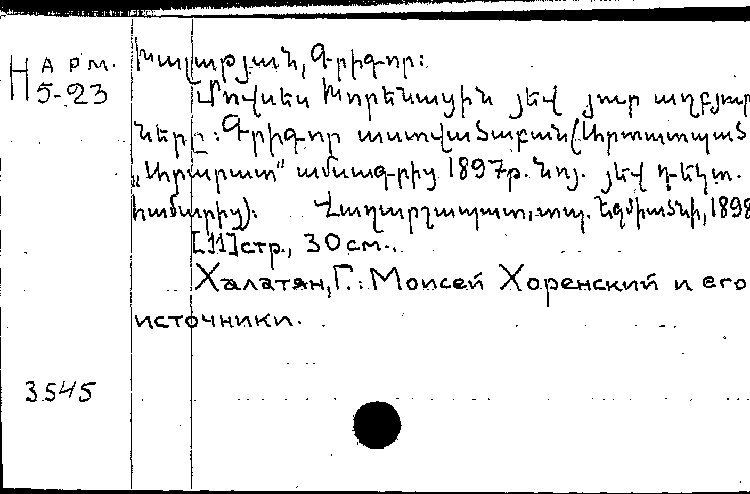 На рм.
5-23
Խալաթյան, Գրիգոր:
Մովսես Խորենացին յեվ յուր աղբյուր
ները: Գրիգոր աստվածաբան (Արտատպած
„Արարատ“ ամսագրից 1897թ. նոյ. յեվ դեկտ.
համարից): Վաղարշապատ, տպ. Եջմիածնի, 1898
[11] стр., 30 см..
Халатян, Г.: Моисей Хоренский и его
источники.
3545